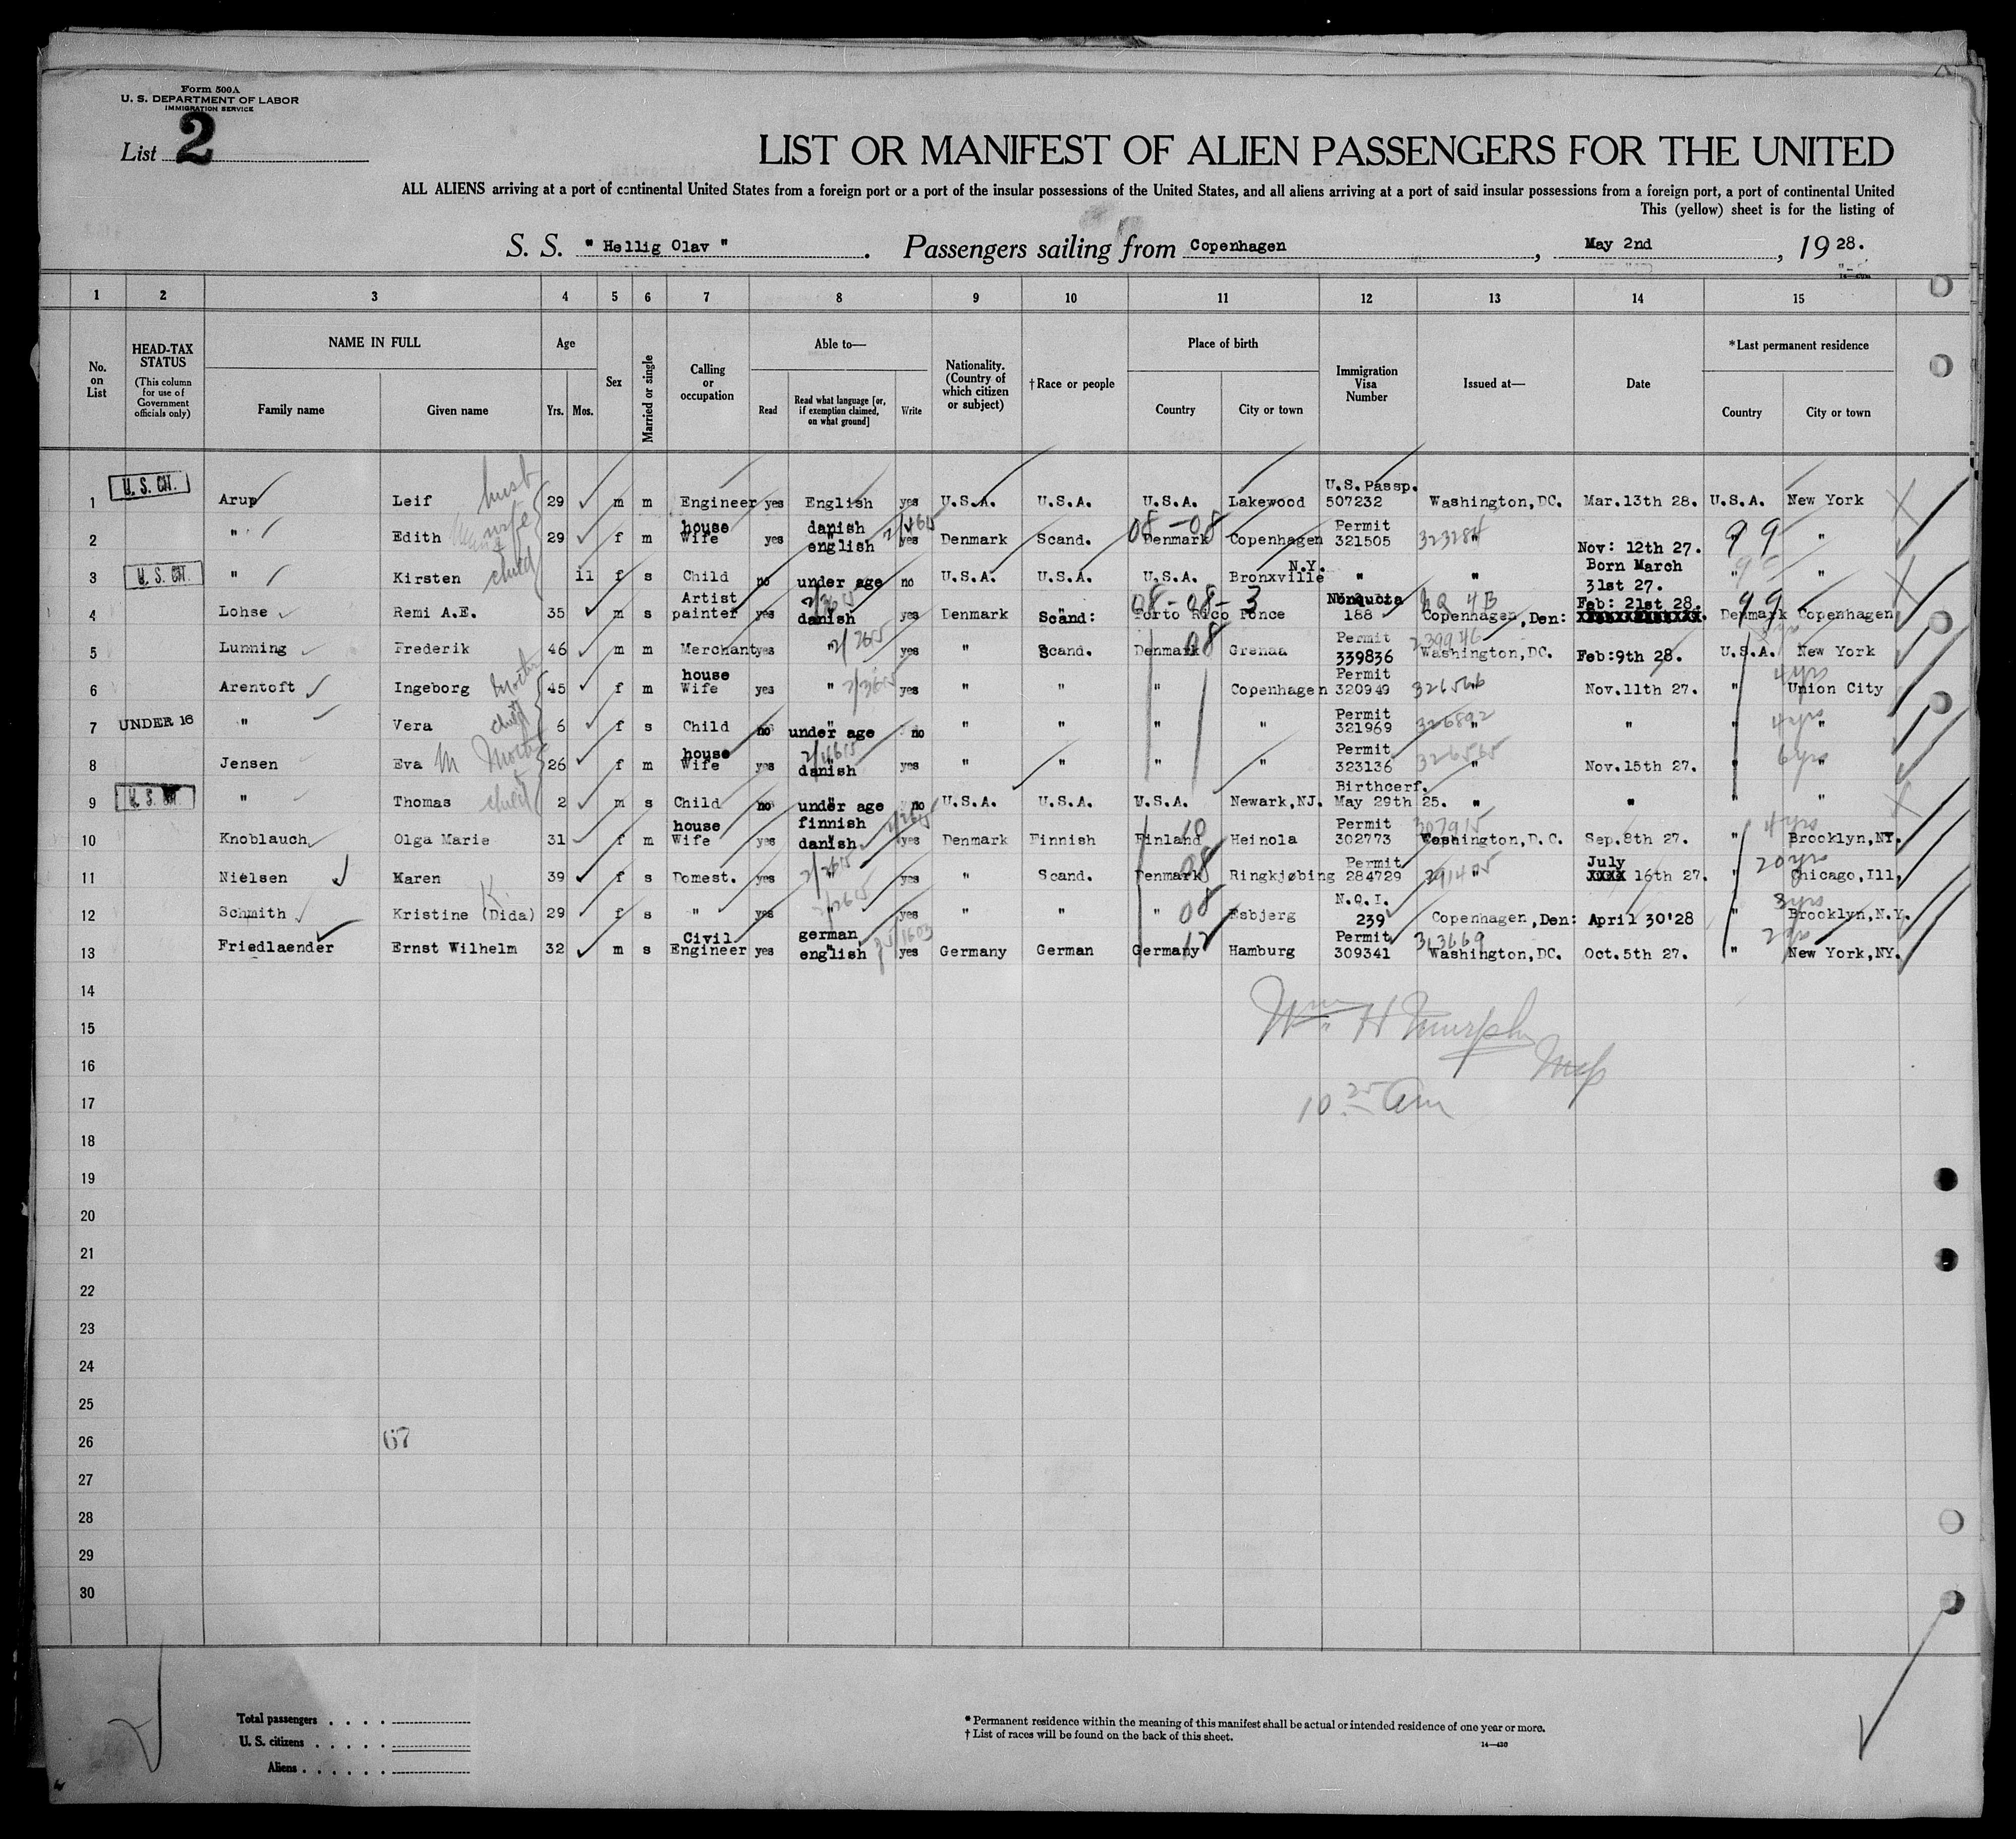 Form 500A
U. S. DEPARTMENT OF LABOR
IMMIGRATION SERVICE
List 2
LIST OR MANIFEST OF ALIEN PASSENGERS FOR THE UNITED
ALL ALIENS arriving at a port of continental United States from a foreign port or a port of the insular possessions of the United States, and all aliens arriving at a port of said insular possessions from a foreign port, a port of continental United
This (yellow) sheet is for the listing of
S. S. " Hellig Olav ". Passengers sailing from Copenhagen, May 2nd, 1928.
1 2 3 4 5 6 7 8 9 10 11 12 13 14 15
No. on List
HEAD-TAX STATUS (This column for use of Government officials only)
NAME IN FULL
Family name Given name
Age
Yrs. Mos.
Sex
Married or single
Calling or occupation
Able to—
Read Read what language [or, if exemption claimed, on what ground] Write
Nationality. (Country of which citizen or subject)
† Race or people
Place of birth
Country City or town
Immigration Visa Number
Issued at—
Date
*Last permanent residence
Country City or town
1 U. S. CIT. Arup Leif husb 29 m m Engineer yes English yes U.S.A. U.S.A. U.S.A. Lakewood U.S.Passp. 507232 Washington,DC. Mar.13th 28. U.S.A. New York
2 " Edith wife 29 f m house Wife yes danish english yes Denmark Scand. 08-08 Denmark Copenhagen Permit 321505 323284 " Nov: 12th 27. 99 " "
3 U. S. CIT. " Kirsten child 11 f s Child no under age no U.S.A. U.S.A. U.S.A. Bronxville N.Y. " " Born March 31st 27. " "
4 Lohse Remi A.E. 35 m s Artist painter yes danish yes Denmark Scand: 08-08-3 Porto Rico Ponce Nonquota 188 Copenhagen,Den: Feb: 21st 28. 99 Denmark Copenhagen
5 Lunning Frederik 46 m m Merchant yes " yes " Scand. Denmark 08 Grenaa Permit 339836 239946 Washington,DC. Feb:9th 28. U.S.A. New York
6 Arentoft Ingeborg Mother 45 f m house Wife yes " yes " " " Copenhagen Permit 320949 326566 Nov.11th 27. " 4yrs Union City
7 UNDER 16 " Vera child 6 f s Child no under age no " " " " Permit 321969 326892 " " " 4yrs "
8 Jensen Eva M Mother 26 f m house Wife yes danish yes " " " " Permit 323136 326565 " Nov.15th 27. " 6yrs "
9 U. S. CIT. " Thomas child 2 m s Child no under age no U.S.A. U.S.A. U.S.A. Newark,NJ. Birthcerf. May 29th 25. " " " "
10 Knoblauch Olga Marie 31 f m house Wife yes finnish danish yes Denmark Finnish Finland 10 Heinola Permit 302773 307915 Washington,D.C. Sep.8th 27. " 4yrs Brooklyn,NY.
11 Nielsen Maren 39 f s Domest. yes " yes " Scand. Denmark 08 Ringkjøbing Permit 284729 291405 " July XXXX 16th 27. " 20yrs Chicago,Ill.
12 Schmith Kristine K. (Dida) 29 f s " yes " yes " " " 08 Esbjerg N.Q.I. 239 Copenhagen,Den: April 30'28 " 3yrs Brooklyn,N.Y.
13 Friedlaender Ernst Wilhelm 32 m s Civil Engineer yes german english yes Germany German Germany 12 Hamburg Permit 309341 313669 Washington,DC. Oct.5th 27. " New York,NY.
14
15 Wm H Murphy
16
17 10 25 am
18
19
20
21
22
23
24
25
26 67
27
28
29
30
Total passengers . . . .
U. S. citizens . . . . .
Aliens . . . . . .
* Permanent residence within the meaning of this manifest shall be actual or intended residence of one year or more.
† List of races will be found on the back of this sheet.
14—430